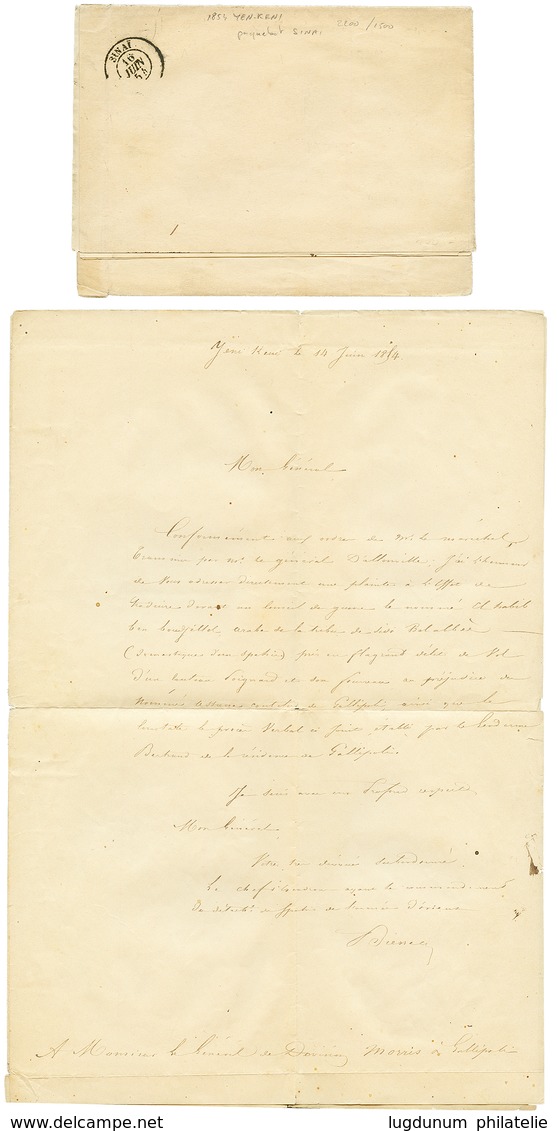 1854 YENI-KENI
2200 / 1500
paquebot SINAI
SINAÏ
16
JUIN
54
Yeni Keni le 14 Juin 1854.
Mon Général
Conformément aux ordres de Mr. le maréchal
par Mr. le général D'allonville. J'ai l'honneur
de vous adresser directement une plainte à l'effet de
traduire devant un conseil de guerre le nommé
arabe de la tribu de
(domestique d'un spahis) pris en flagrant délit de vol
d'un couteau Poignard et son fourreau au préjudice du
nommé de Gallipoli, ainsi que le
constate le procès verbal ci joint établi par le Gendarme
Bertrand de la résidence de Gallipoli.
Je suis avec un Profond respect
Mon Général
Votre très dévoué subordonné.
Le chef d'escadron ayant le commandement
du détacht. de Spahis de l'armée d'orient
A Monsieur le Général de Division Morris à Gallipoli
delcampe.net
lugdunum philatelie